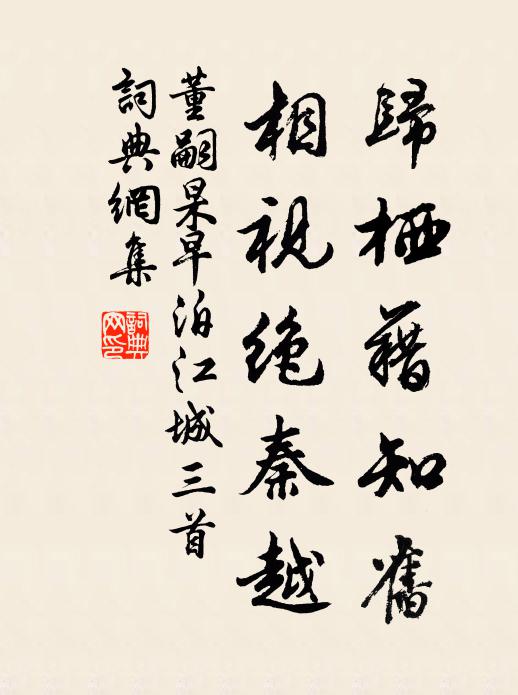 歸栖藉知舊
相視絕秦越
董嗣杲早泊江城三首
詞典網集
詞典
网印